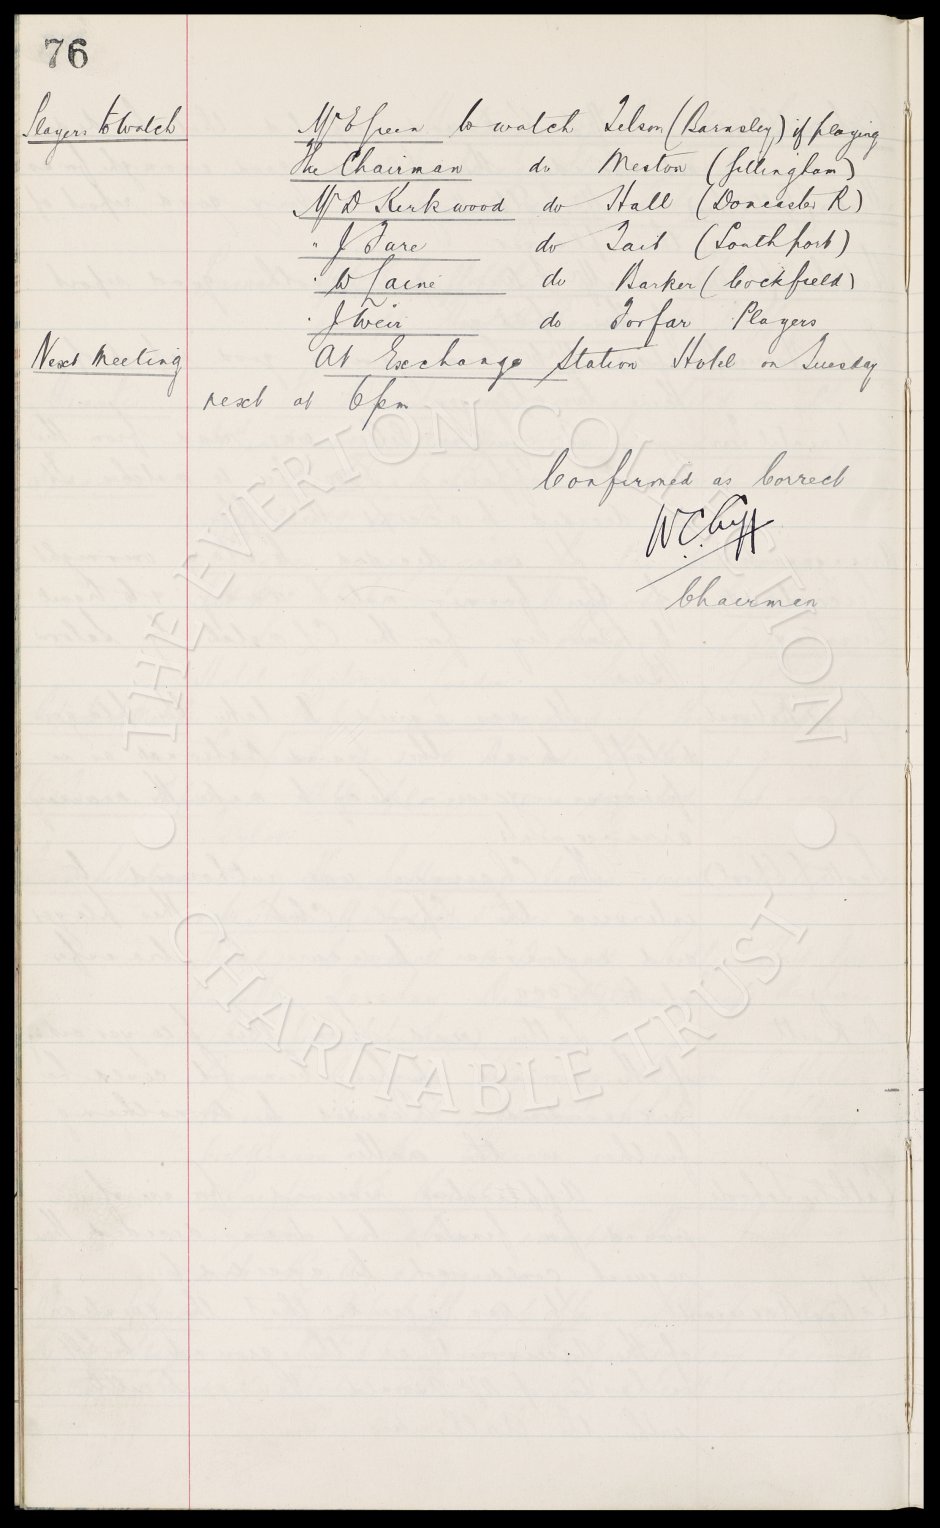 76
Players to Watch
Mr E Green to watch Gelson (Barnsley) if playing
The Chairman do Meston (Gillingham)
Mr D Kirkwood do Hall (Doncaster R)
" J Fare do Tait (Southport)
" W Gaine do Barker (Cockfield)
" J Weir do Forfar Players
Next Meeting
At Exchange Station Hotel on Tuesday
next at 6pm
Confirmed as Correct
W.C. Cuff
Chairman
THE EVERTON COLLECTION
CHARITABLE TRUST